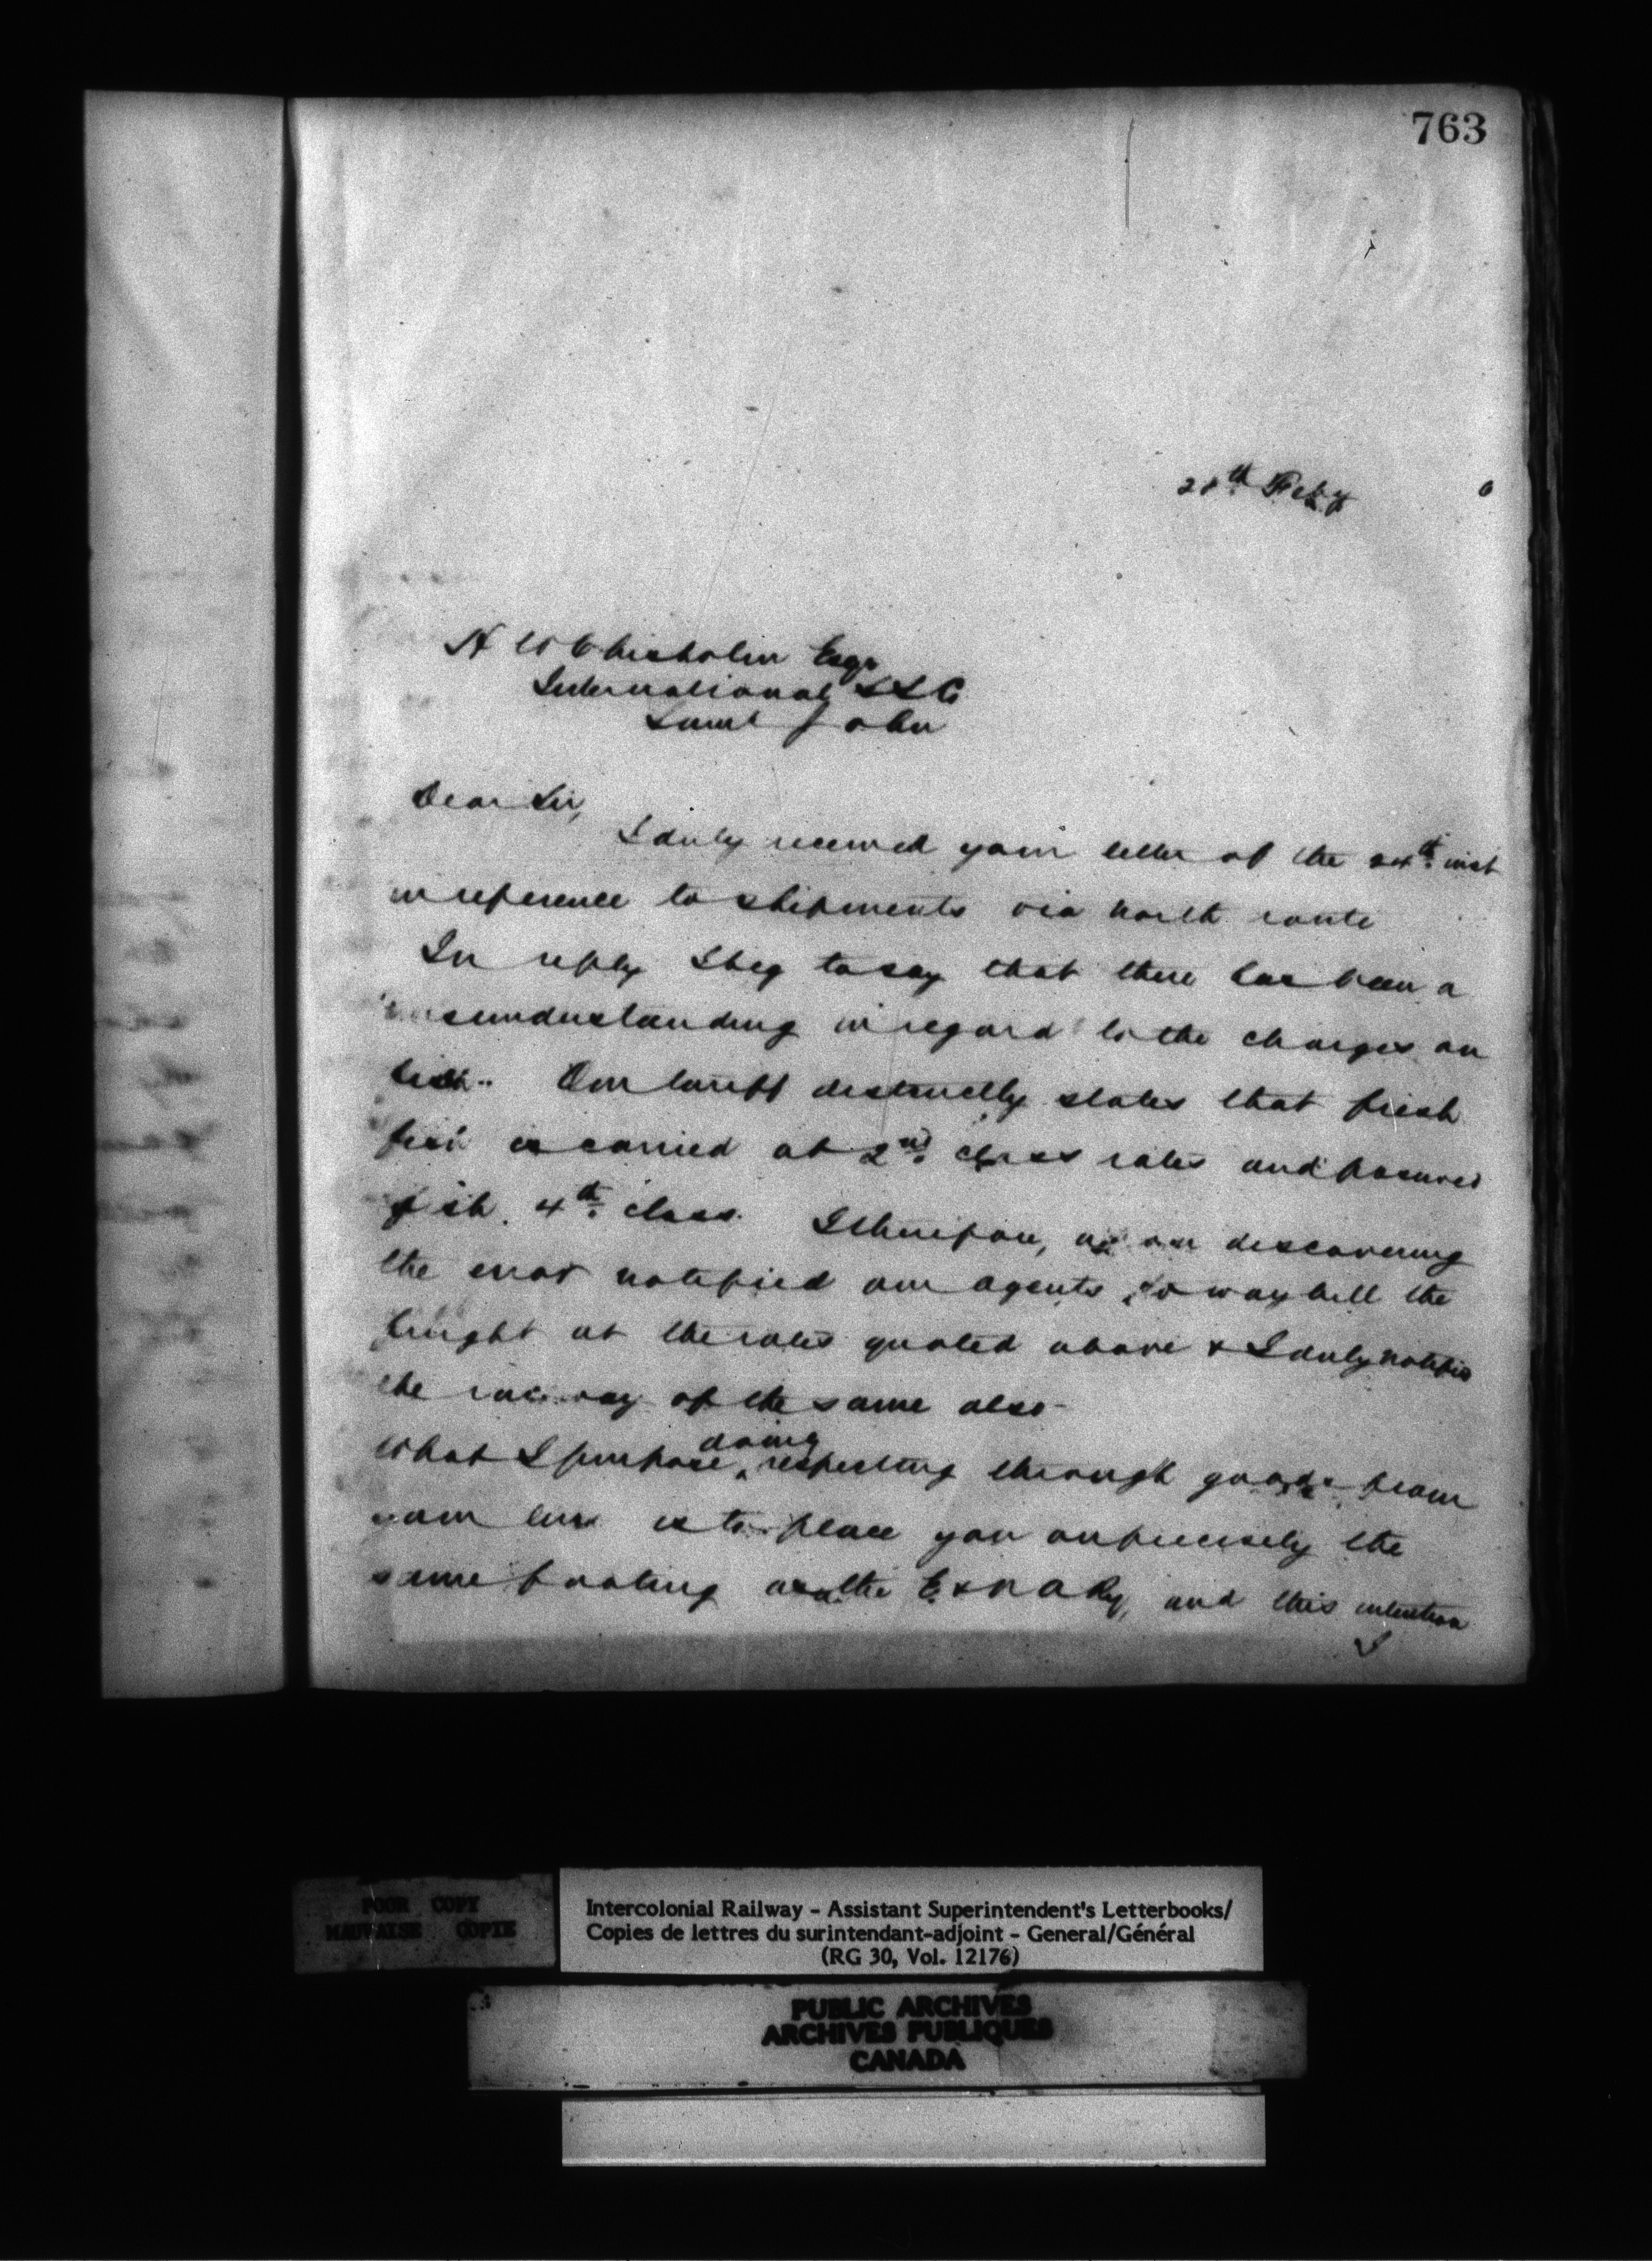 763
28th Feby
H W Chisholm Esqr
International SSCo
Saint John
Dear Sir,
I duly received your letter of the 24th inst
in reference to shipments via north route
In reply I beg to say that there has been a
misunderstanding in regard to the charges on
fish. Our tariff distinctly states that fresh
fish is carried at 2nd class rates and
fish 4th class. I therefore, on discovering
the error notified our agents to waybill the
freight at the rates quoted above & I duly notified
the railway of the same also
What I purpose doing respecting through goods from
your line is to place you on precisely the
same footing as the E & N A Ry, and this intention
I
POOR COPY
MAUVAISE COPIE
Intercolonial Railway - Assistant Superintendent's Letterbooks/
Copies de lettres du surintendant-adjoint - General/Général
(RG 30, Vol. 12176)
PUBLIC ARCHIVES
ARCHIVES PUBLIQUES
CANADA